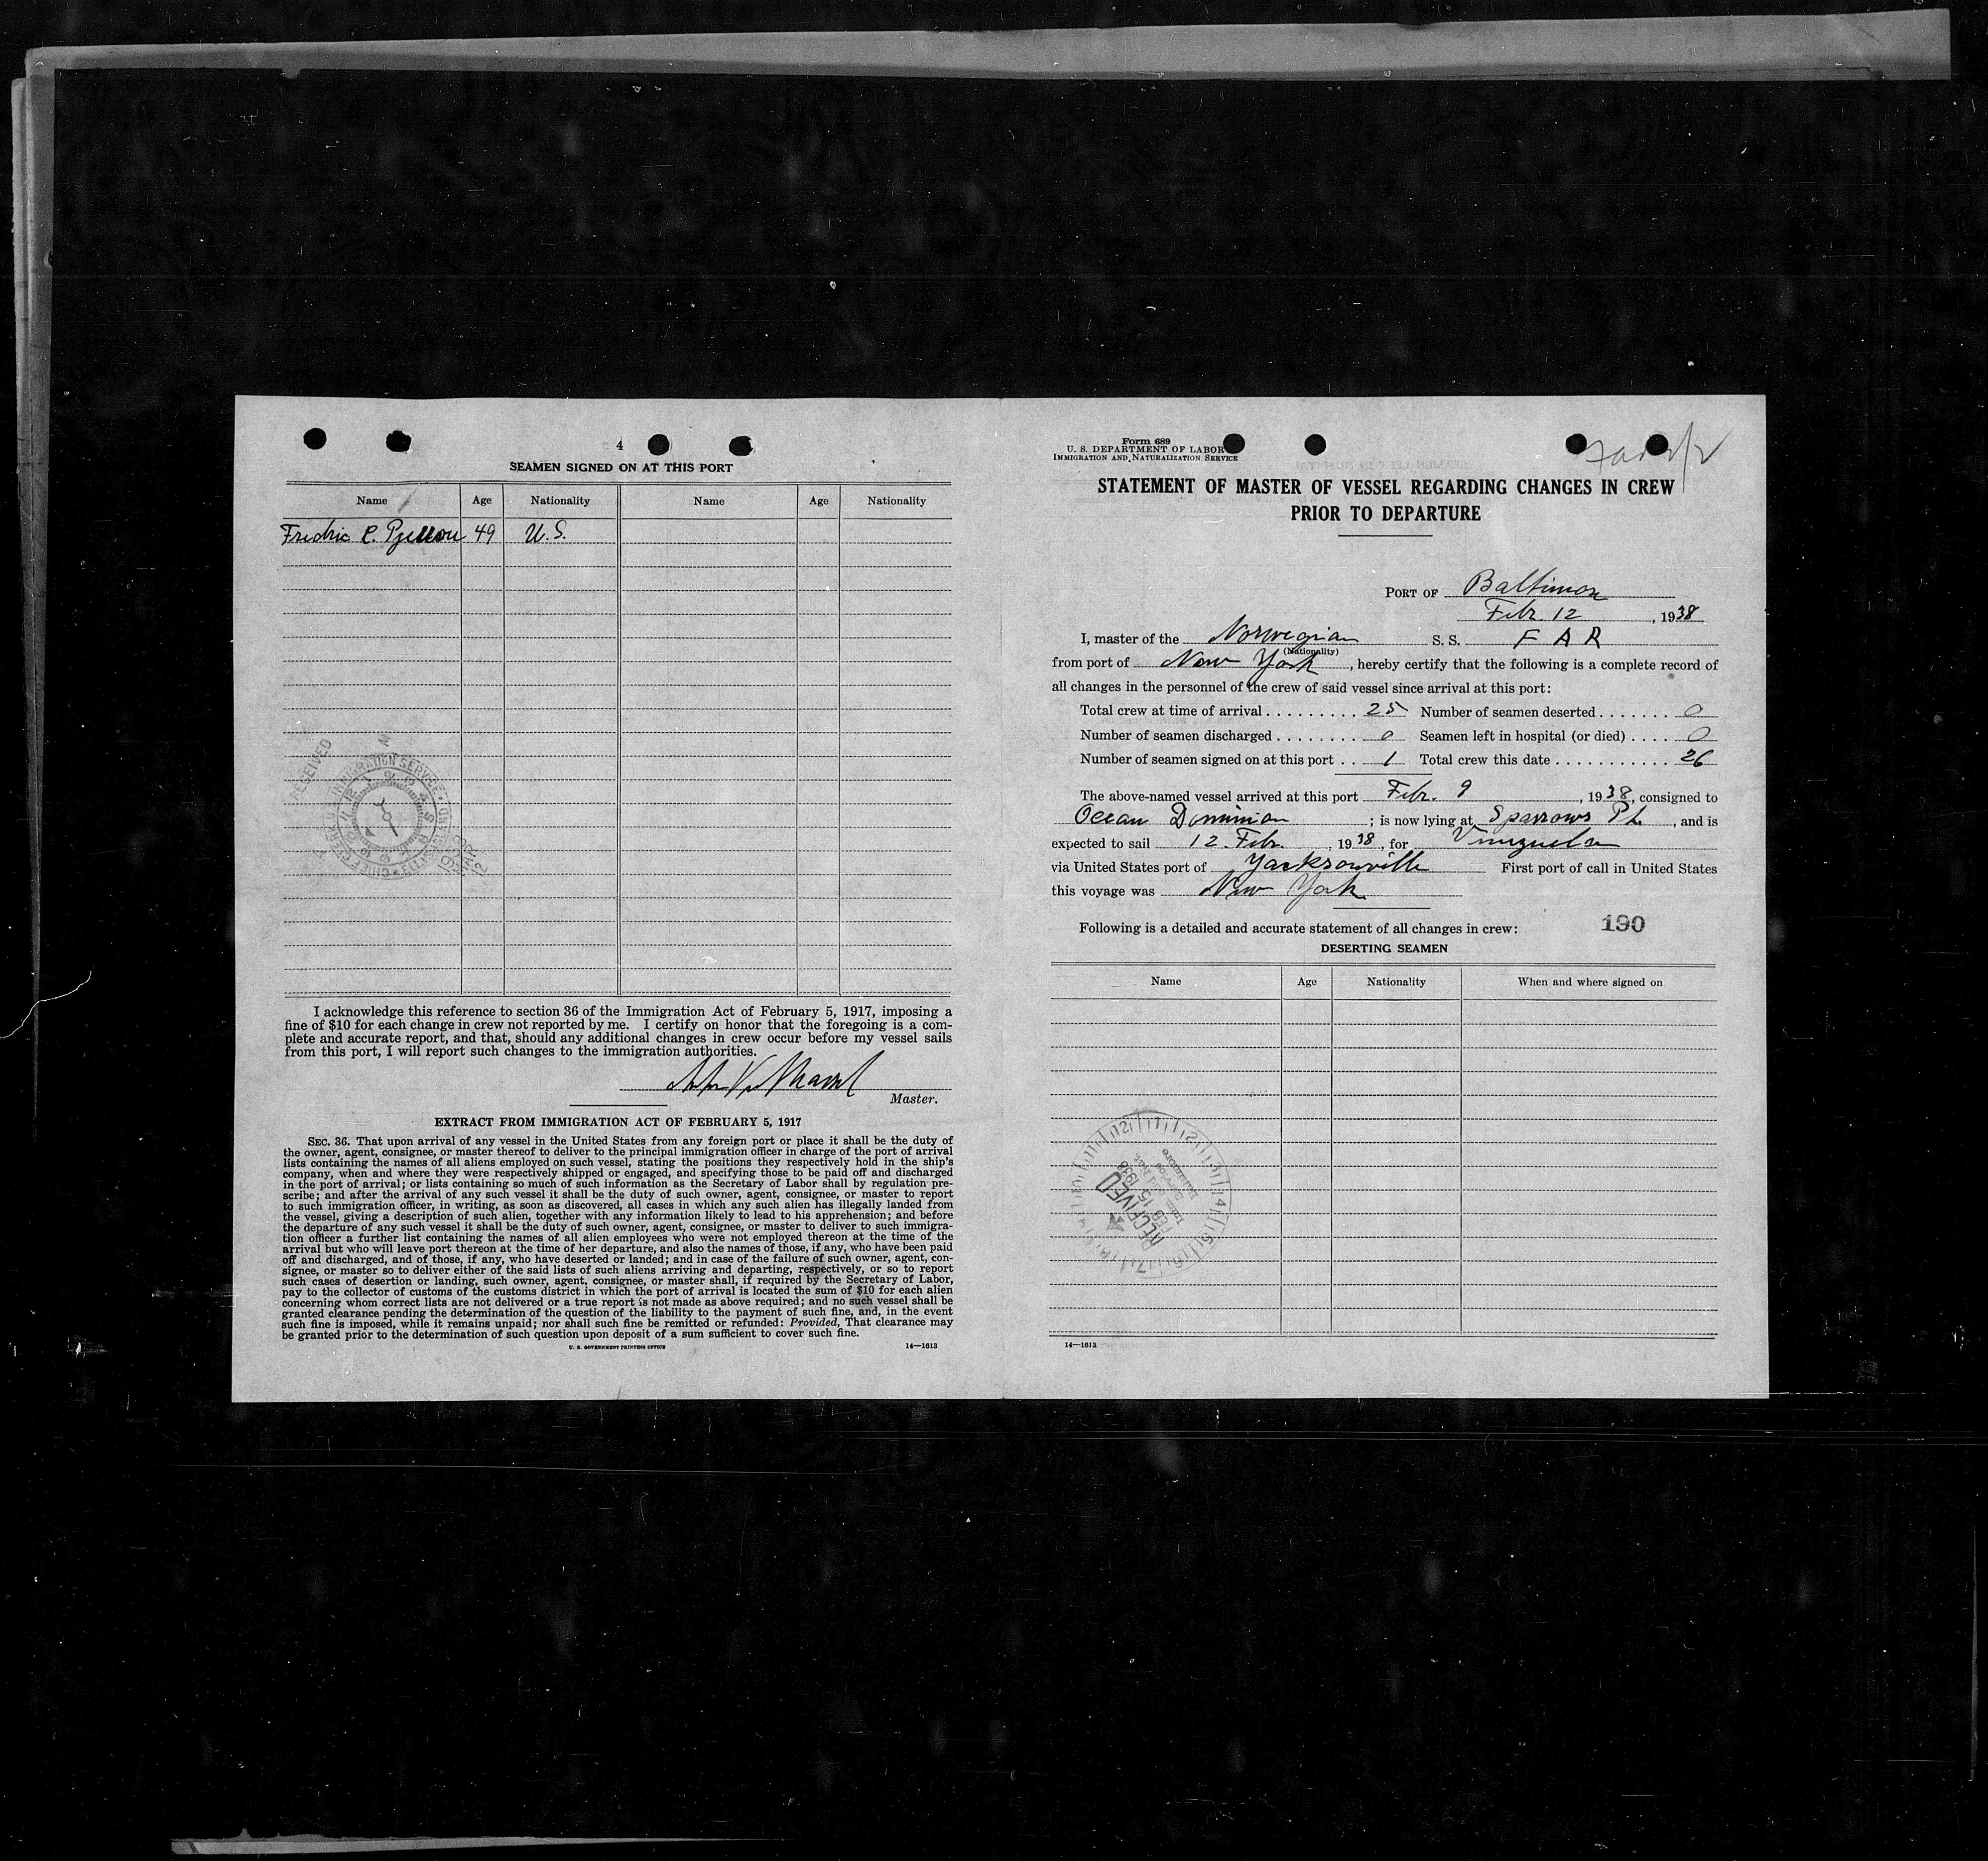 4
SEAMEN SIGNED ON AT THIS PORT
Name Age Nationality Name Age Nationality
Fredric C. 49 U.S.
RECEIVED
I acknowledge this reference to section 36 of the Immigration Act of February 5, 1917, imposing a
fine of $10 for each change in crew not reported by me. I certify on honor that the foregoing is a com-
plete and accurate report, and that, should any additional changes in crew occur before my vessel sails
from this port, I will report such changes to the immigration authorities.
Master.
EXTRACT FROM IMMIGRATION ACT OF FEBRUARY 5, 1917
SEC. 36. That upon arrival of any vessel in the United States from any foreign port or place it shall be the duty of
the owner, agent, consignee, or master thereof to deliver to the principal immigration officer in charge of the port of arrival
lists containing the names of all aliens employed on such vessel, stating the positions they respectively hold in the ship's
company, when and where they were respectively shipped or engaged, and specifying those to be paid off and discharged
in the port of arrival; or lists containing so much of such information as the Secretary of Labor shall by regulation pre-
scribe; and after the arrival of any such vessel it shall be the duty of such owner, agent, consignee, or master to report
to such immigration officer, in writing, as soon as discovered, all cases in which any such alien has illegally landed from
the vessel, giving a description of such alien, together with any information likely to lead to his apprehension; and before
the departure of any such vessel it shall be the duty of such owner, agent, consignee, or master to deliver to such immigra-
tion officer a further list containing the names of all alien employees who were not employed thereon at the time of the
arrival but who will leave port thereon at the time of her departure, and also the names of those, if any, who have been paid
off and discharged, and of those, if any, who have deserted or landed; and in case of the failure of such owner, agent, con-
signee, or master so to deliver either of the said lists of such aliens arriving and departing, respectively, or so to report
such cases of desertion or landing, such owner, agent, consignee, or master shall, if required by the Secretary of Labor,
pay to the collector of customs of the customs district in which the port of arrival is located the sum of $10 for each alien
concerning whom correct lists are not delivered or a true report is not made as above required; and no such vessel shall be
granted clearance pending the determination of the question of the liability to the payment of such fine, and, in the event
such fine is imposed, while it remains unpaid; nor shall such fine be remitted or refunded: Provided, That clearance may
be granted prior to the determination of such question upon deposit of a sum sufficient to cover such fine.
U. S. GOVERNMENT PRINTING OFFICE 14—1613
Form 689
U. S. DEPARTMENT OF LABOR
IMMIGRATION AND NATURALIZATION SERVICE
STATEMENT OF MASTER OF VESSEL REGARDING CHANGES IN CREW
PRIOR TO DEPARTURE
PORT OF Baltimore
Febr. 12, 1938
I, master of the Norwegian S. S. FAR
(Nationality)
from port of New York, hereby certify that the following is a complete record of
all changes in the personnel of the crew of said vessel since arrival at this port:
Total crew at time of arrival 25 Number of seamen deserted 0
Number of seamen discharged 0 Seamen left in hospital (or died) 0
Number of seamen signed on at this port 1 Total crew this date 26
The above-named vessel arrived at this port Febr. 9, 1938, consigned to
Ocean Dominion; is now lying at Sparrows Pt., and is
expected to sail 12. Febr., 1938, for Venezuela
via United States port of Yacksonville First port of call in United States
this voyage was New York
Following is a detailed and accurate statement of all changes in crew: 190
DESERTING SEAMEN
Name Age Nationality When and where signed on
RECEIVED
FEB 15 1938
14—1613